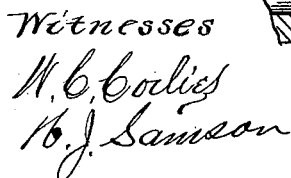 Witnesses
W. C. Corlies
H. J. Samson